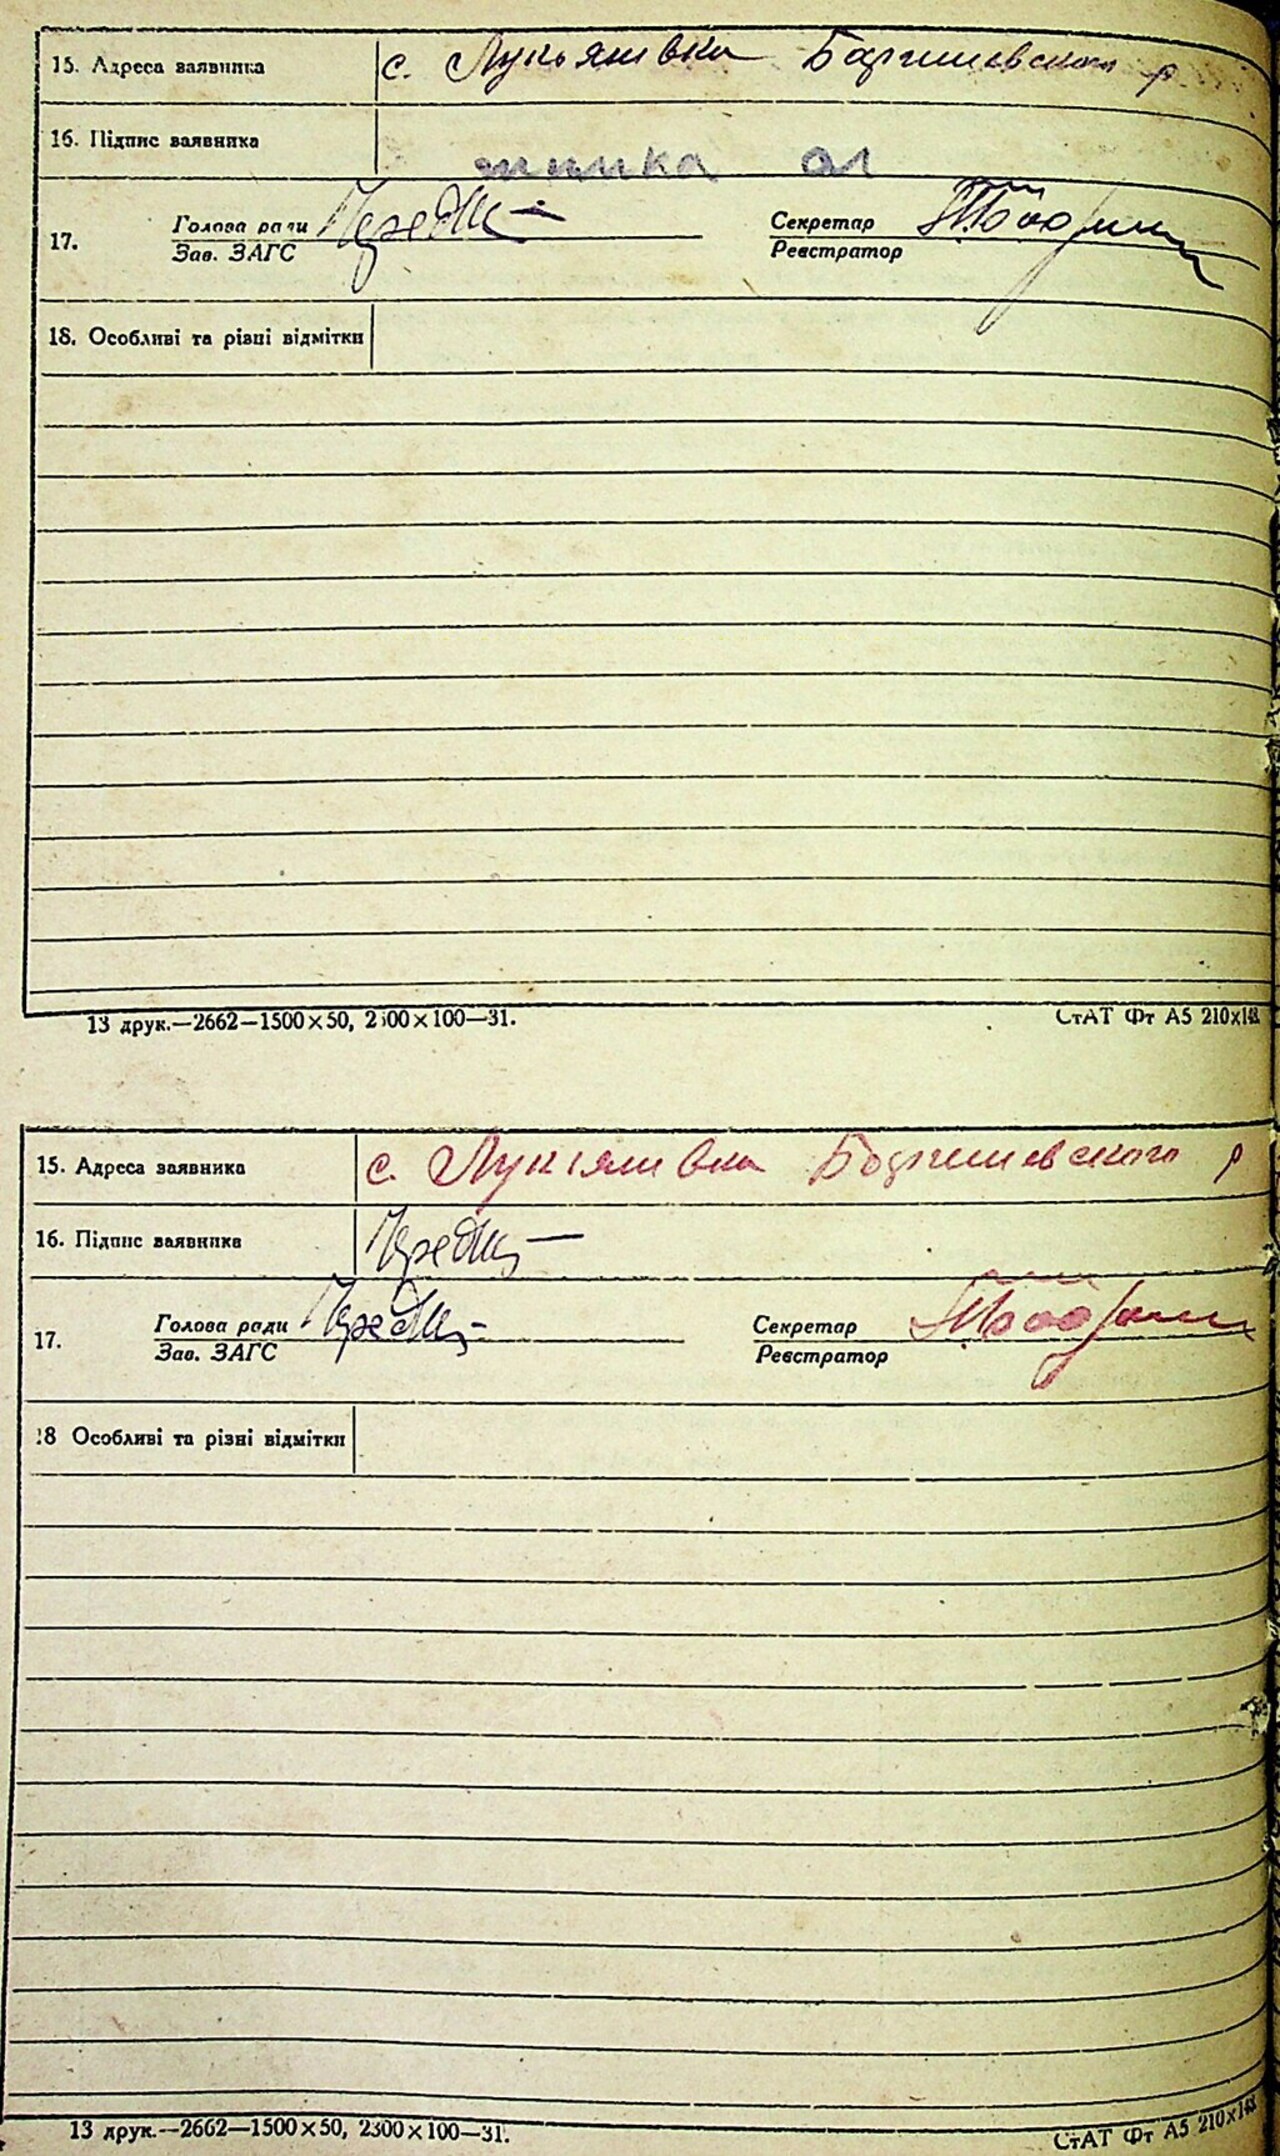 15. Адреса заявника с. Лукьянивка Баришевского р
16. Підпис заявника
17. Голова ради Секретар
Зав. ЗАГС Реєстратор
18. Особливі та різні відмітки
13 друк.—2662—1500×50, 2300×100—31. СтАТ Фт А5 210х148
15. Адреса заявника с. Лукіянивка Баришевского р
16. Підпис заявника
17. Голова ради Секретар
Зав. ЗАГС Реєстратор
18 Особливі та різні відмітки
13 друк.—2662—1500×50, 2300×100—31. СтАТ Фт А5 210х148